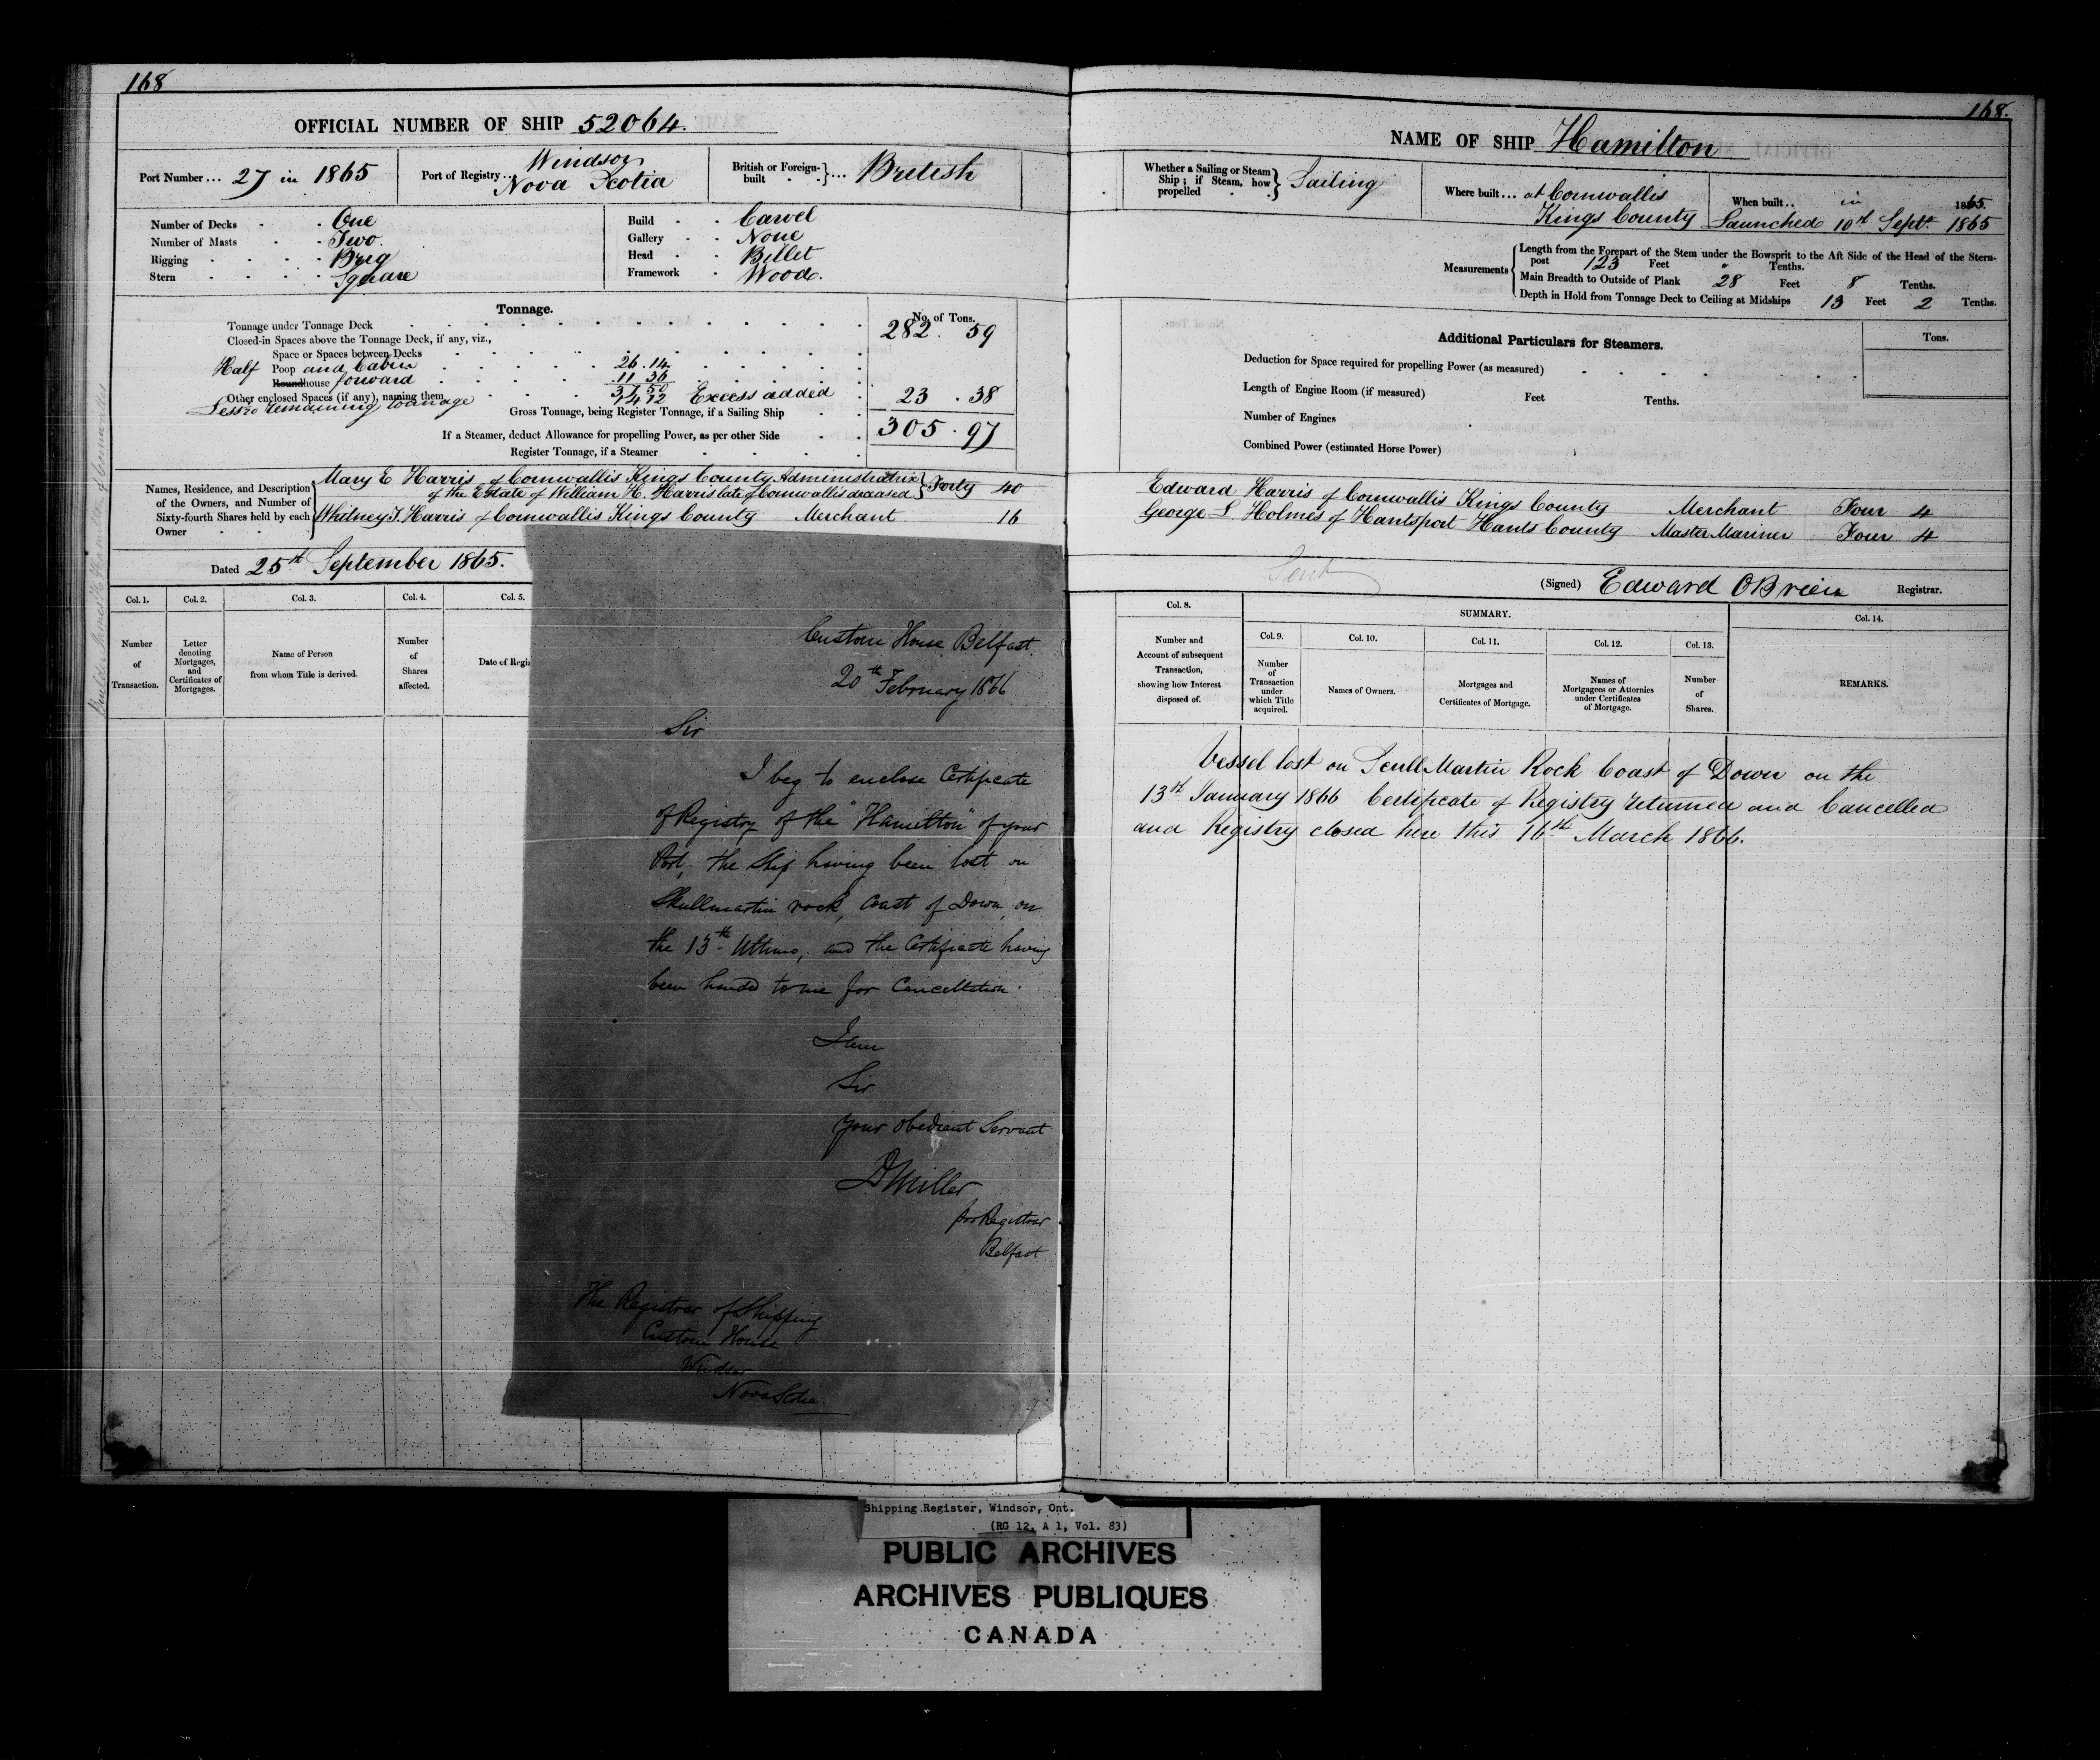 168
OFFICIAL NUMBER OF SHIP 52064.
Port Number... 27 in 1865
Port of Registry... Windsor
Nova Scotia
British or Foreign-built ... British
Number of Decks One
Number of Masts Two.
Rigging Brig
Stern Square
Build Carvel
Gallery None
Head Billet
Framework Wood.
Tonnage.
No. of Tons.
Tonnage under Tonnage Deck 282. 59
Closed-in Spaces above the Tonnage Deck, if any, viz.,
Space or Spaces between Decks
Half Poop and Cabin 26.14
Roundhouse forward 11 36
37 50
Other enclosed Spaces (if any), naming them
Excess added 23 . 38
remaining tonnage
Gross Tonnage, being Register Tonnage, if a Sailing Ship 305 . 97
If a Steamer, deduct Allowance for propelling Power, as per other Side
Register Tonnage, if a Steamer
Names, Residence, and Description of the Owners, and Number of Sixty-fourth Shares held by each Owner
Mary E Harris of Cornwallis Kings County Administratrix
of the Estate of William H. Harris late of Cornwallis deceased } Forty 40
Whitney T. Harris of Cornwallis Kings County Merchant 16
Dated 25th September 1865.
Col. 1. Col. 2. Col. 3. Col. 4. Col. 5.
Number of Transaction.
Letter denoting Mortgages, and Certificates of Mortgages.
Name of Person from whom Title is derived.
Number of Shares affected.
Date of Regis
Custom House Belfast.
20th February 1866
Sir
I beg to enclose Certificate
of Registry of the "Hamilton" of your
Port, the Ship having been lost on
Skullmartin rock, Coast of Down, on
the 13th Ultimo, and the Certificate having
been handed to me for Cancellation.
I am
Sir
Your Obedient Servant
D Miller
pro Registrar
Belfast
The Registrar of Shipping
Custom House
Windsor
Nova Scotia
168.
NAME OF SHIP Hamilton
Whether a Sailing or Steam Ship; if Steam, how propelled } Sailing
Where built... at Cornwallis
Kings County
When built.. in 1865.
Launched 10th Sept. 1865
Measurements
Length from the Forepart of the Stem under the Bowsprit to the Aft Side of the Head of the Stern-
post 123 Feet " Tenths.
Main Breadth to Outside of Plank 28 Feet 8 Tenths.
Depth in Hold from Tonnage Deck to Ceiling at Midships 13 Feet 2 Tenths.
Additional Particulars for Steamers.
Tons.
Deduction for Space required for propelling Power (as measured)
Length of Engine Room (if measured) Feet Tenths.
Number of Engines
Combined Power (estimated Horse Power)
Edward Harris of Cornwallis Kings County Merchant Four 4
George L Holmes of Hantsport Hants County Master Mariner Four 4
(Signed) Edward OBrien Registrar.
Col. 8. SUMMARY. Col. 14.
Col. 9. Col. 10. Col. 11. Col. 12. Col. 13.
Number and Account of subsequent Transaction, showing how Interest disposed of.
Number of Transaction under which Title acquired.
Names of Owners.
Mortgages and Certificates of Mortgage.
Names of Mortgagees or Attornies under Certificates of Mortgage.
Number of Shares.
REMARKS.
Vessel lost on Scull Martin Rock Coast of Down on the
13th January 1866 Certificate of Registry returned and Cancelled
and Registry closed here this 16th March 1866.
Shipping Register, Windsor, Ont.
(RG 12, A 1, Vol. 83)
PUBLIC ARCHIVES
ARCHIVES PUBLIQUES
CANADA